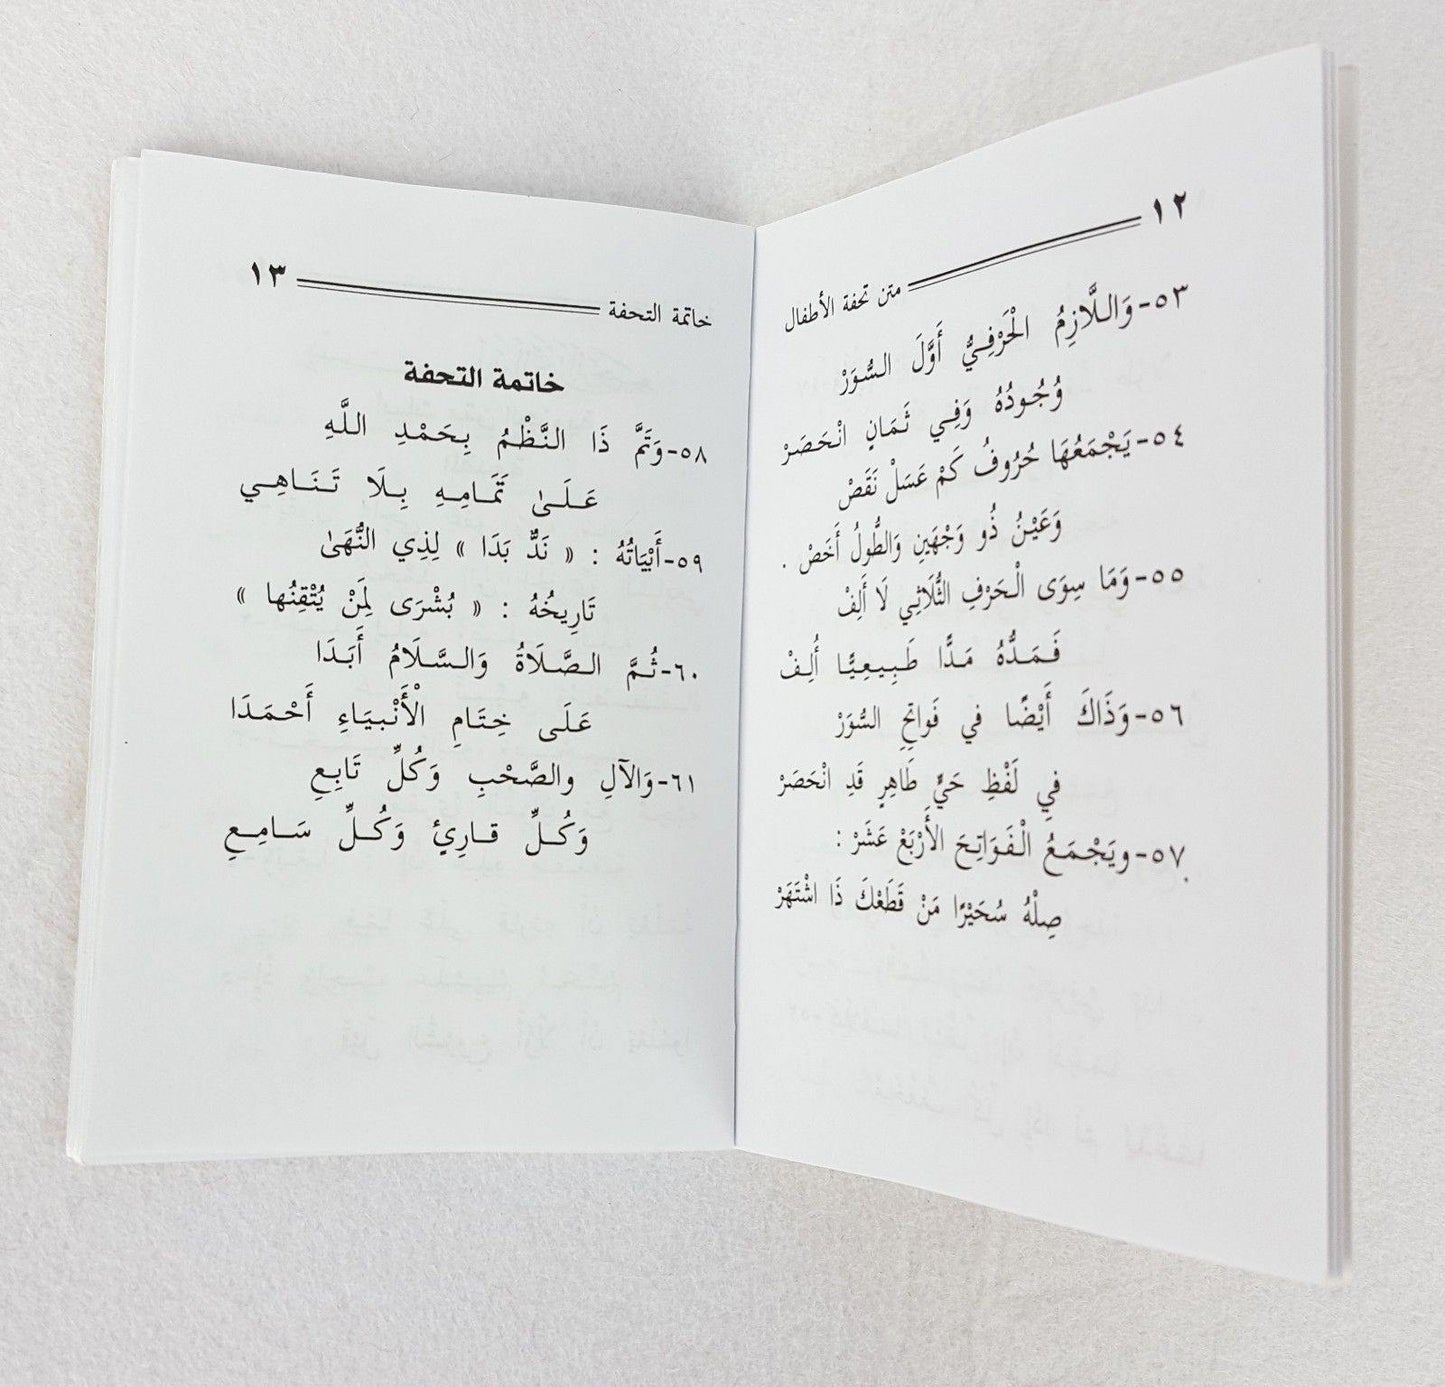 ١٢
متن تحفة الأطفال
٥٣-وَالـلَّازِمُ الْحَرْفِـيُّ أَوَّلَ الـسُّـوَرْ
وُجُـودُهُ وَفِـي ثَـمَـانٍ انْـحَـصَـرْ
٥٤-يَجْمَعُهَا حُرُوفُ كَمْ عَسَلْ نَقَصْ
وَعَيْـنُ ذُو وَجْهَيـنِ وَالطُّولُ أَخَصْ .
٥٥-وَمَا سِوَى الْـحَـرْفِ الثُّلَاثِي لَا أَلِفْ
فَـمَـدُّهُ مَـدًّا طَـبِـيـعِـيًّـا أُلِـفْ
٥٦-وَذَاكَ أَيْضًا في فَوَاتِحِ السُّوَرْ
فِي لَفْظِ حَيٍّ طَاهِرٍ قَدِ انْحَصَرْ
٥٧-ويَجْـمَـعُ الْـفَـوَاتِـحَ الأَرْبَعْ عَشَرْ :
صِلْهُ سُحَيْرًا مَنْ قَطَعْكَ ذَا اشْتَهَرْ
١٣
خاتمة التحفة
خاتمة التحفة
٥٨-وَتَمَّ ذَا الـنَّـظْـمُ بِـحَـمْـدِ الـلَّـهِ
عَـلَـىٰ تَمَـامِـهِ بِـلَا تَـنَـاهِـي
٥٩-أَبْيَاتُهُ : « نَدٌّ بَدَا » لِذِي النُّهَىٰ
تَارِيخُهُ : « بُشْرَى لِمَنْ يُتْقِنُها »
٦٠-ثُـمَّ الـصَّـلَاةُ وَالـسَّـلَامُ أَبَـدَا
عَـلَـى خِـتَـامِ الْأَنْـبـيَـاءِ أَحْـمَـدَا
٦١-وَالآلِ والصَّحْبِ وَكُلِّ تَابِعِ
وَكُـلِّ قـارِئ وَكُـلِّ سَـامِـعِ